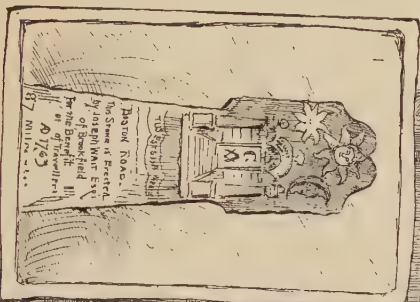 BOSTON ROAD-
This Stone is Erected
by JOSEPH WAIT Esqr
of Brookfield
For the Benefit
of Travellers
AD 1763
G